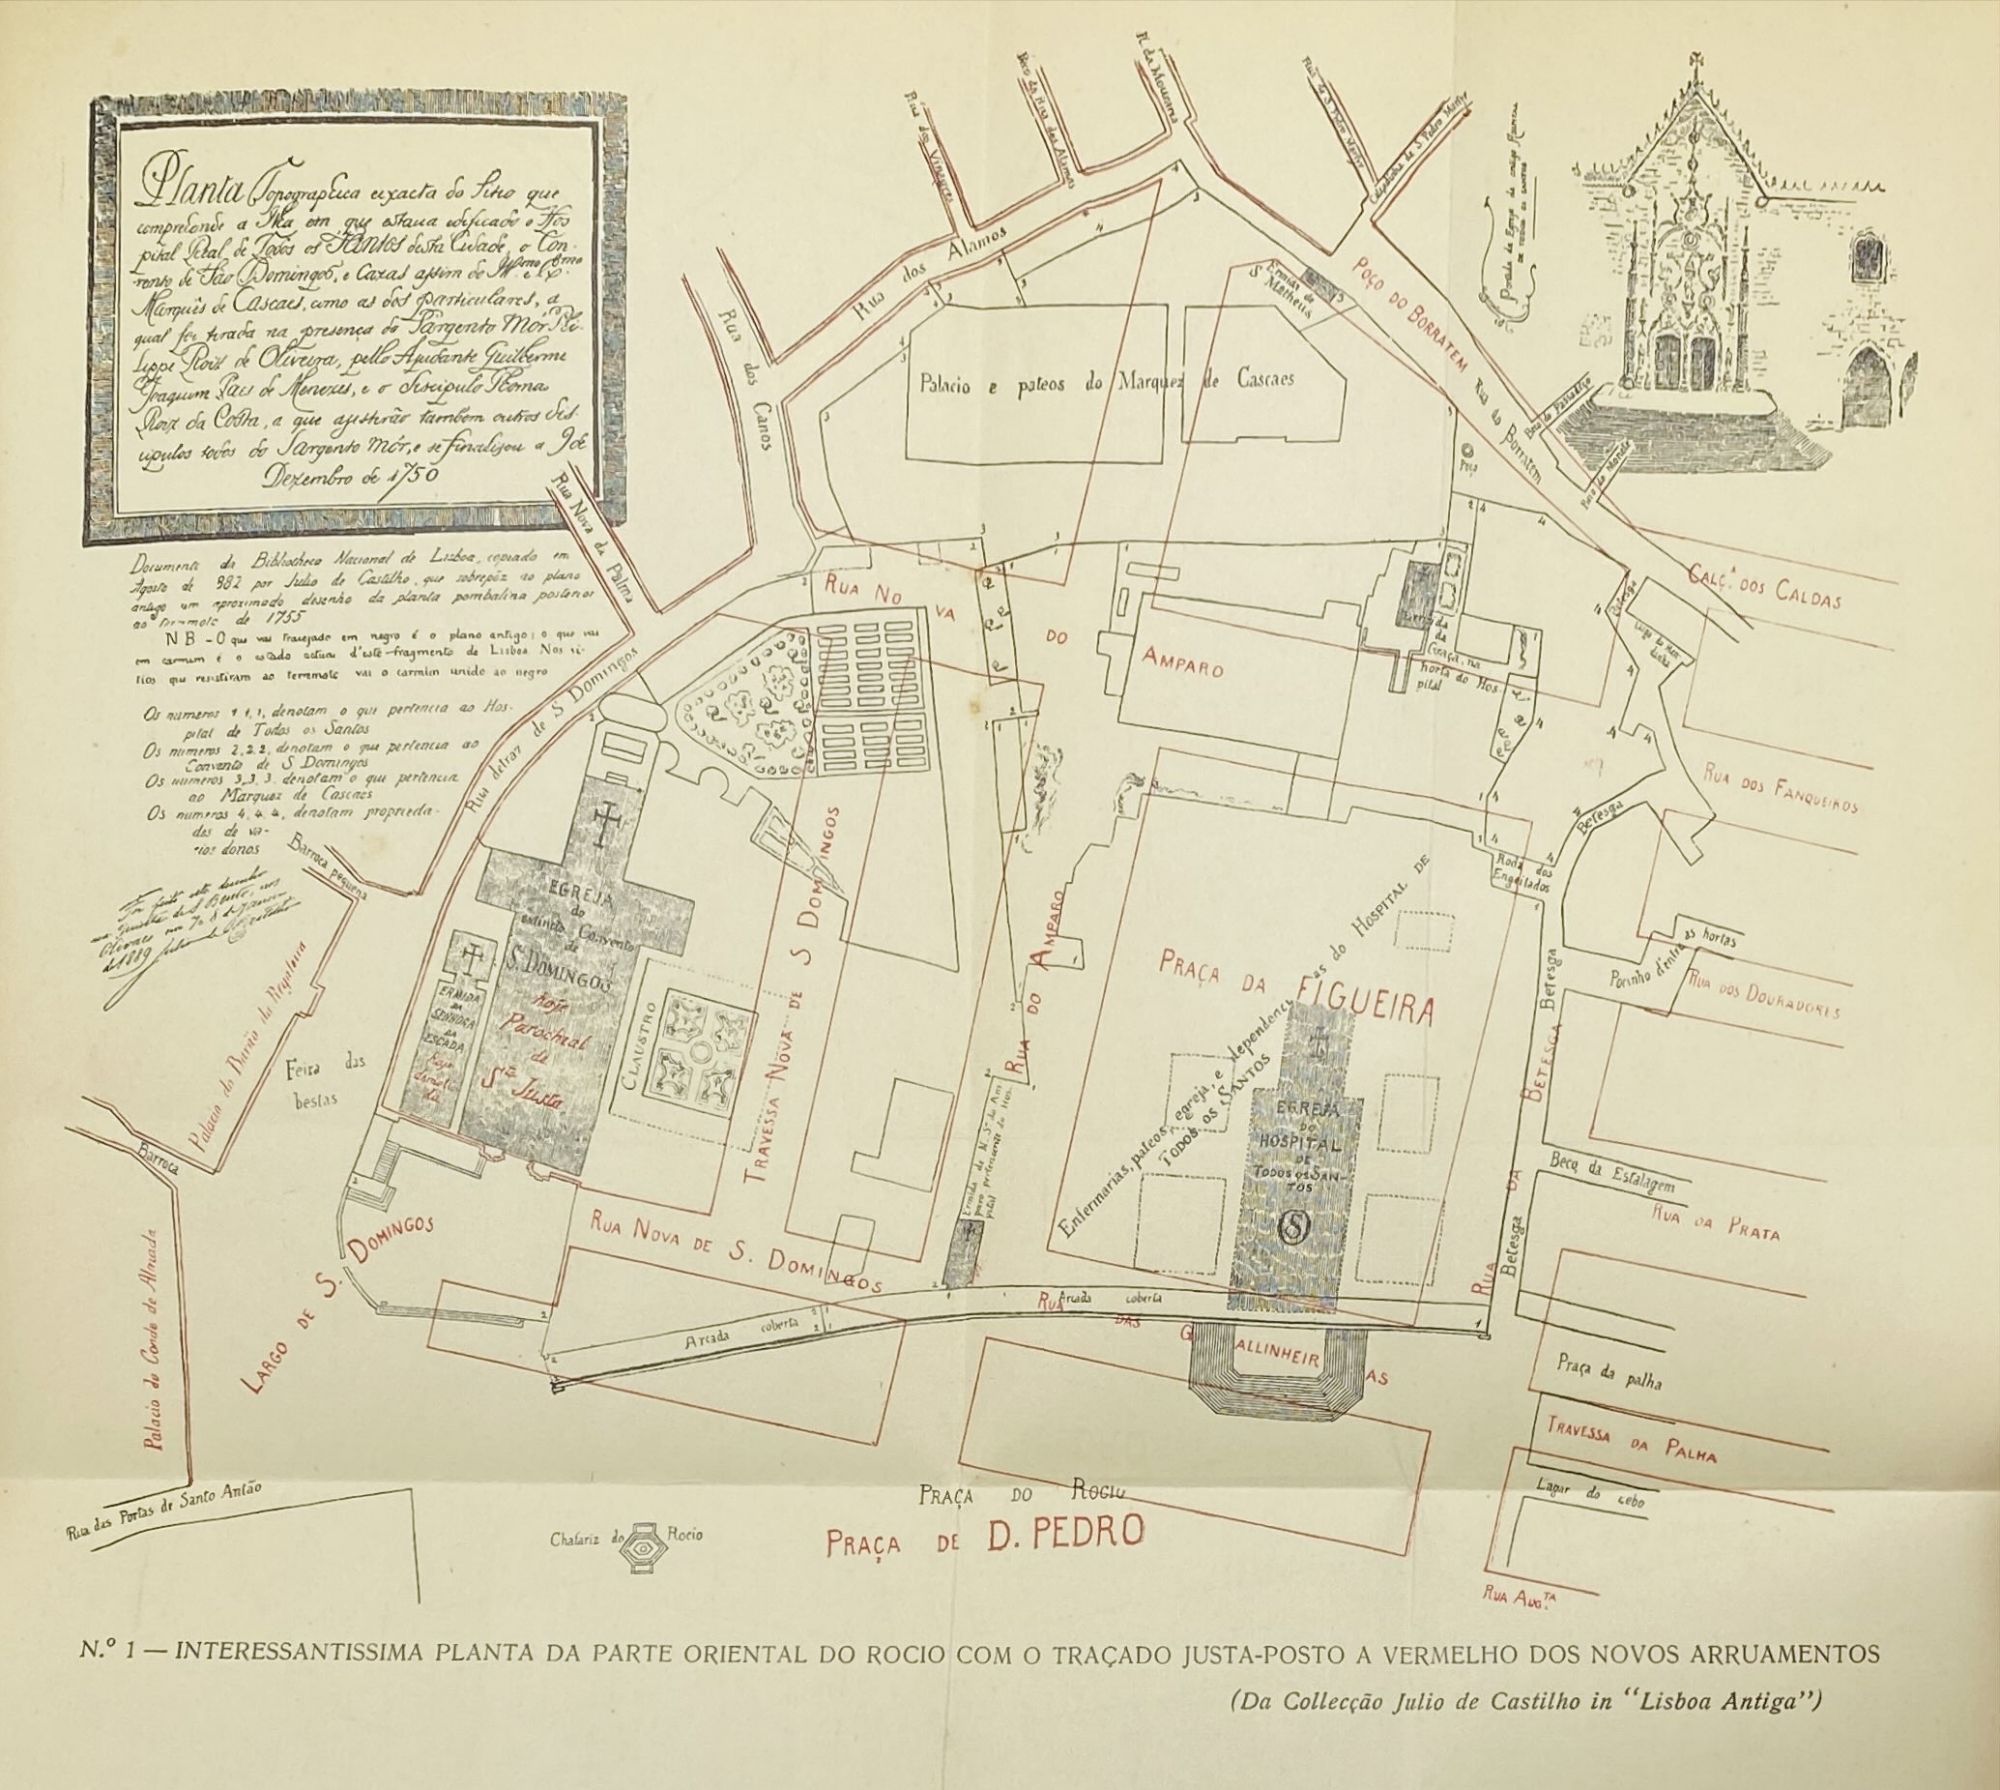 Planta Topographica exacta do Sitio que
comprehende a Ilha em que estava edificado o Hos
pital Real de Todos os Santos desta Cidade, o Con-
vento de São Domingos, e Cazas assim do Illmo e Exmo
Marquês de Cascaes, como as dos particulares, a
qual foi tirada na presença do Sargento Mór Phi-
lippe Roiz de Oliveira, pello Ajudante Guilherme
Joaquim Paes de Menezes, e o discipulo Thomas
Roiz da Costa, a que assistirão tambem outros dis-
cipulos todos do Sargento Mór, e se finalisou a 9 de
Dezembro de 1750
Documento da Bibliotheca Nacional de Lisboa, copiado em
Agosto de 882 por Julio de Castilho, que sobrepôz ao plano
antigo um aproximado desenho da planta pombalina posterior
ao terremoto de 1755
NB - O que vai tracejado em negro é o plano antigo; o que vai
em carmim é o estado actual d'este fragmento de Lisboa. Nos si-
tios que resistiram ao terremoto vai o carmim unido ao negro
Os numeros 1, 1, 1, denotam o que pertencia ao Hos-
pital de Todos os Santos
Os numeros 2, 2, 2, denotam o que pertencia ao
Convento de S. Domingos
Os numeros 3, 3, 3, denotam o que pertencia
ao Marquez de Cascaes
Os numeros 4, 4, 4, denotam proprieda-
des de va-
rios donos
Foi feito este desenho
Olivaes
de 1889 Julio de Castilho
Rua dos Vinagres
Beco da Rua dos Alamos
R. da Mouraria
Rua de S. Pedro Martyr
Calçadinha de S. Pedro Martyr
Portada da Egreja do antigo Hospital
DE TODOS OS SANTOS
Rua dos Alamos
Rua dos Canos
Rua Nova da Palma
Ermida de
S. Matheus
POÇO DO BORRATEM
Rua do Borratem
Beco do Passadiço
Poço
Palacio e pateos do Marquez de Cascaes
CALÇ.A DOS CALDAS
Betesga
RUA NOVA DO AMPARO
Ermida
da
Graça, na
horta do Hos-
pital
Rua detraz de S Domingos
Barroca pequena
RUA DOS FANQUEIROS
Betesga
Roda dos
Engeitados
EGREJA
do
extincto Convento
de
S. DOMINGOS
hoje
Parochial
de
Sta Justa
ERMIDA
DA
SENHORA
DA
ESCADA
Hoje
demoli-
da
CLAUSTRO
TRAVESSA NOVA DE S DOMINGOS
RUA DO AMPARO
PRAÇA DA FIGUEIRA
Enfermarias, pateos, egreja, e dependencias do HOSPITAL DE
TODOS OS SANTOS
EGREJA
DO
HOSPITAL
DE
TODOS OS SAN-
TOS
Betesga
Postinho d'entre as hortas
RUA DOS DOURADORES
Palacio do Barão da Regaleira
Feira das
bestas
Barroca
Palacio do Conde de Almada
LARGO DE S. DOMINGOS
RUA NOVA DE S. DOMINGOS
Ermida de N. Sra do Am
paro pertencente ao Hos-
pital
RUA DA BETESGA
Betesga
Beco da Estalagem
RUA DA PRATA
Arcada coberta
Arcada coberta
RUA DAS GALLINHEIRAS
Praça da palha
TRAVESSA DA PALHA
Lagar do cebo
RUA AUG.TA
Rua das Portas de Santo Antão
Chafariz do Rocio
PRAÇA DO ROCIO
PRAÇA DE D. PEDRO
N.º 1 — INTERESSANTISSIMA PLANTA DA PARTE ORIENTAL DO ROCIO COM O TRAÇADO JUSTA-POSTO A VERMELHO DOS NOVOS ARRUAMENTOS
(Da Collecção Julio de Castilho in "Lisboa Antiga")